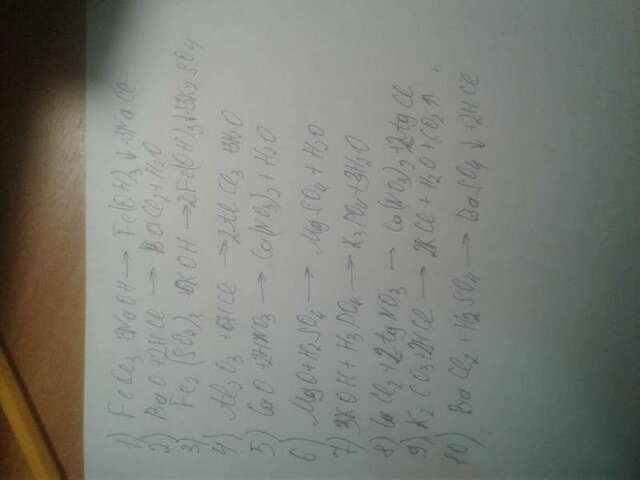 1) FeCl₃ + 3NaOH → Fe(OH)₃ ↓ + 3NaCl
2) BaO + 2HCl → BaCl₂ + H₂O
3) Fe₂(SO₄)₃ + 6KOH → 2Fe(OH)₃ ↓ + 3K₂SO₄
4) Al₂O₃ + 6HCl → 2AlCl₃ + 3H₂O
5) CaO + 2HNO₃ → Ca(NO₃)₂ + H₂O
6) MgO + H₂SO₄ → MgSO₄ + H₂O
7) 3KOH + H₃PO₄ → K₃PO₄ + 3H₂O
8) CaCl₂ + 2AgNO₃ → Ca(NO₃)₂ + 2AgCl
9) K₂CO₃ + 2HCl → 2KCl + H₂O + CO₂ ↑
10) BaCl₂ + H₂SO₄ → BaSO₄ ↓ + 2HCl